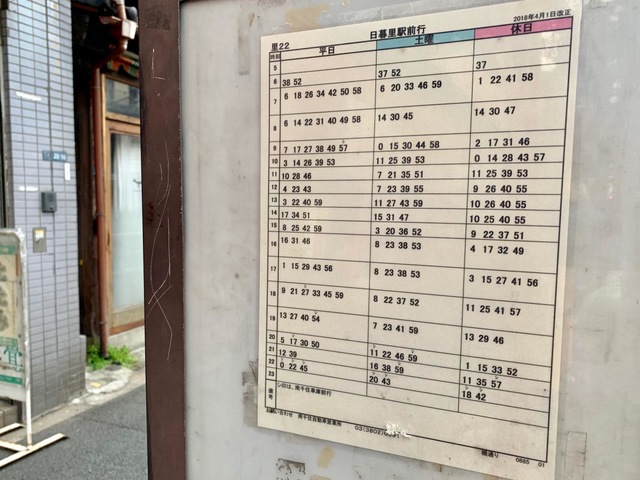 2018年4月1日改正
里22 日暮里駅前行
時刻 平日 土曜 休日
5
6 38 52 37 52 37
7 6 18 26 34 42 50 58 6 20 33 46 59 1 22 41 58
8 6 14 22 31 40 49 58 14 30 45 14 30 47
9 7 17 27 38 49 57 0 15 30 44 58 2 17 31 46
10 3 14 26 39 53 11 25 39 53 0 14 28 43 57
11 10 28 46 7 21 35 51 11 25 39 53
12 4 23 43 7 23 39 55 9 26 40 55
13 3 22 40 59 11 27 43 59 10 26 40 55
14 17 34 51 15 31 47 10 25 40 55
15 8 25 42 59 3 20 36 52 9 22 37 51
16 16 31 46 8 23 38 53 4 17 32 49
17 1 15 29 43 56 8 23 38 53 3 15 27 41 56
18 9 21 27 33 45 59 8 22 37 52 11 25 41 57
19 13 27 40 54 7 23 41 59 13 29 46
20 5 17 30 50 11 22 46 59 1 15 33 52
21 12 39 16 38 59 11 35 57
22 0 22 45 20 43 18 42
23
備考 シ印は、南千住車庫前行
お問い合わせ 南千住自動車営業所
橋通り 0885 .01